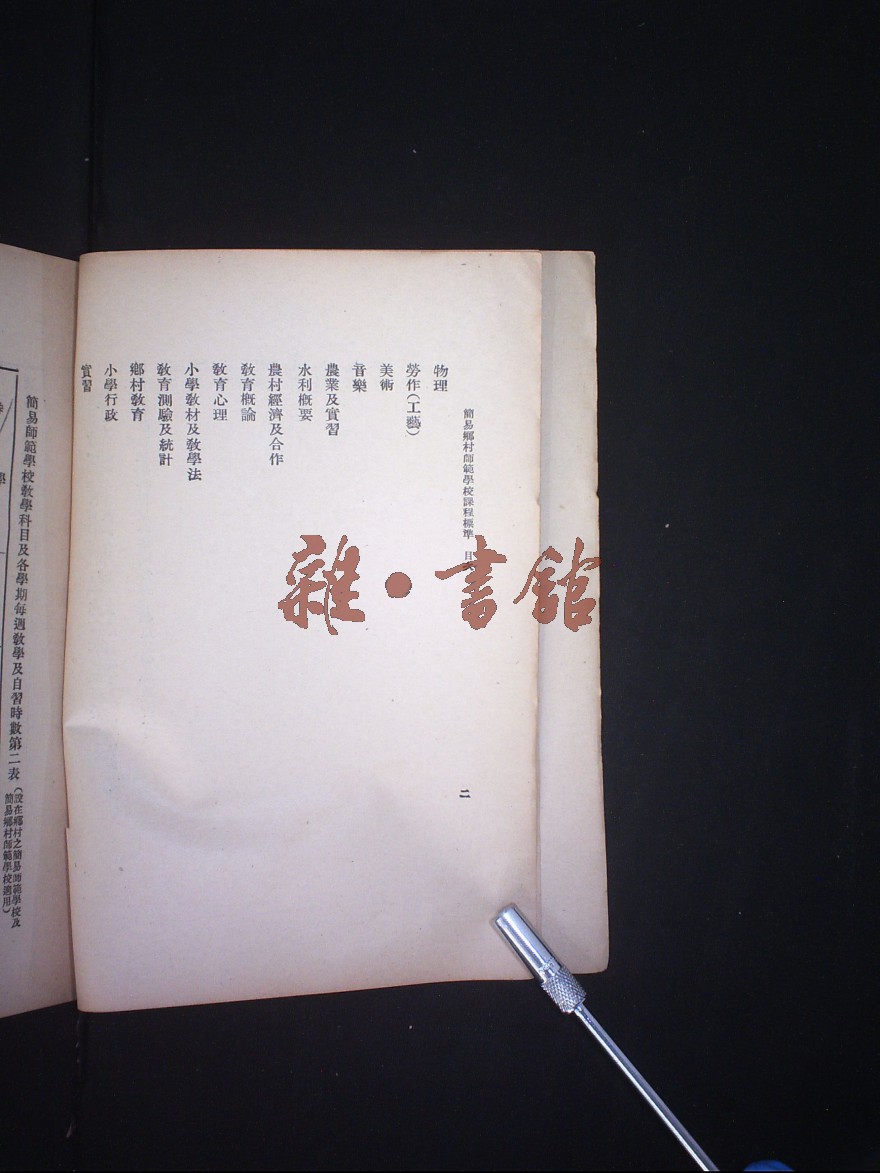 簡易鄉村師範學校課程標準 目
二
物理
勞作(工藝)
美術
音樂
農業及實習
水利概要
農村經濟及合作
敎育概論
敎育心理
小學敎材及敎學法
敎育測驗及統計
鄉村敎育
小學行政
實習
簡易師範學校敎學科目及各學期每週敎學及自習時數第二表
(設在鄉村之簡易師範學校及
簡易鄉村師範學校適用)
學
雜·書館